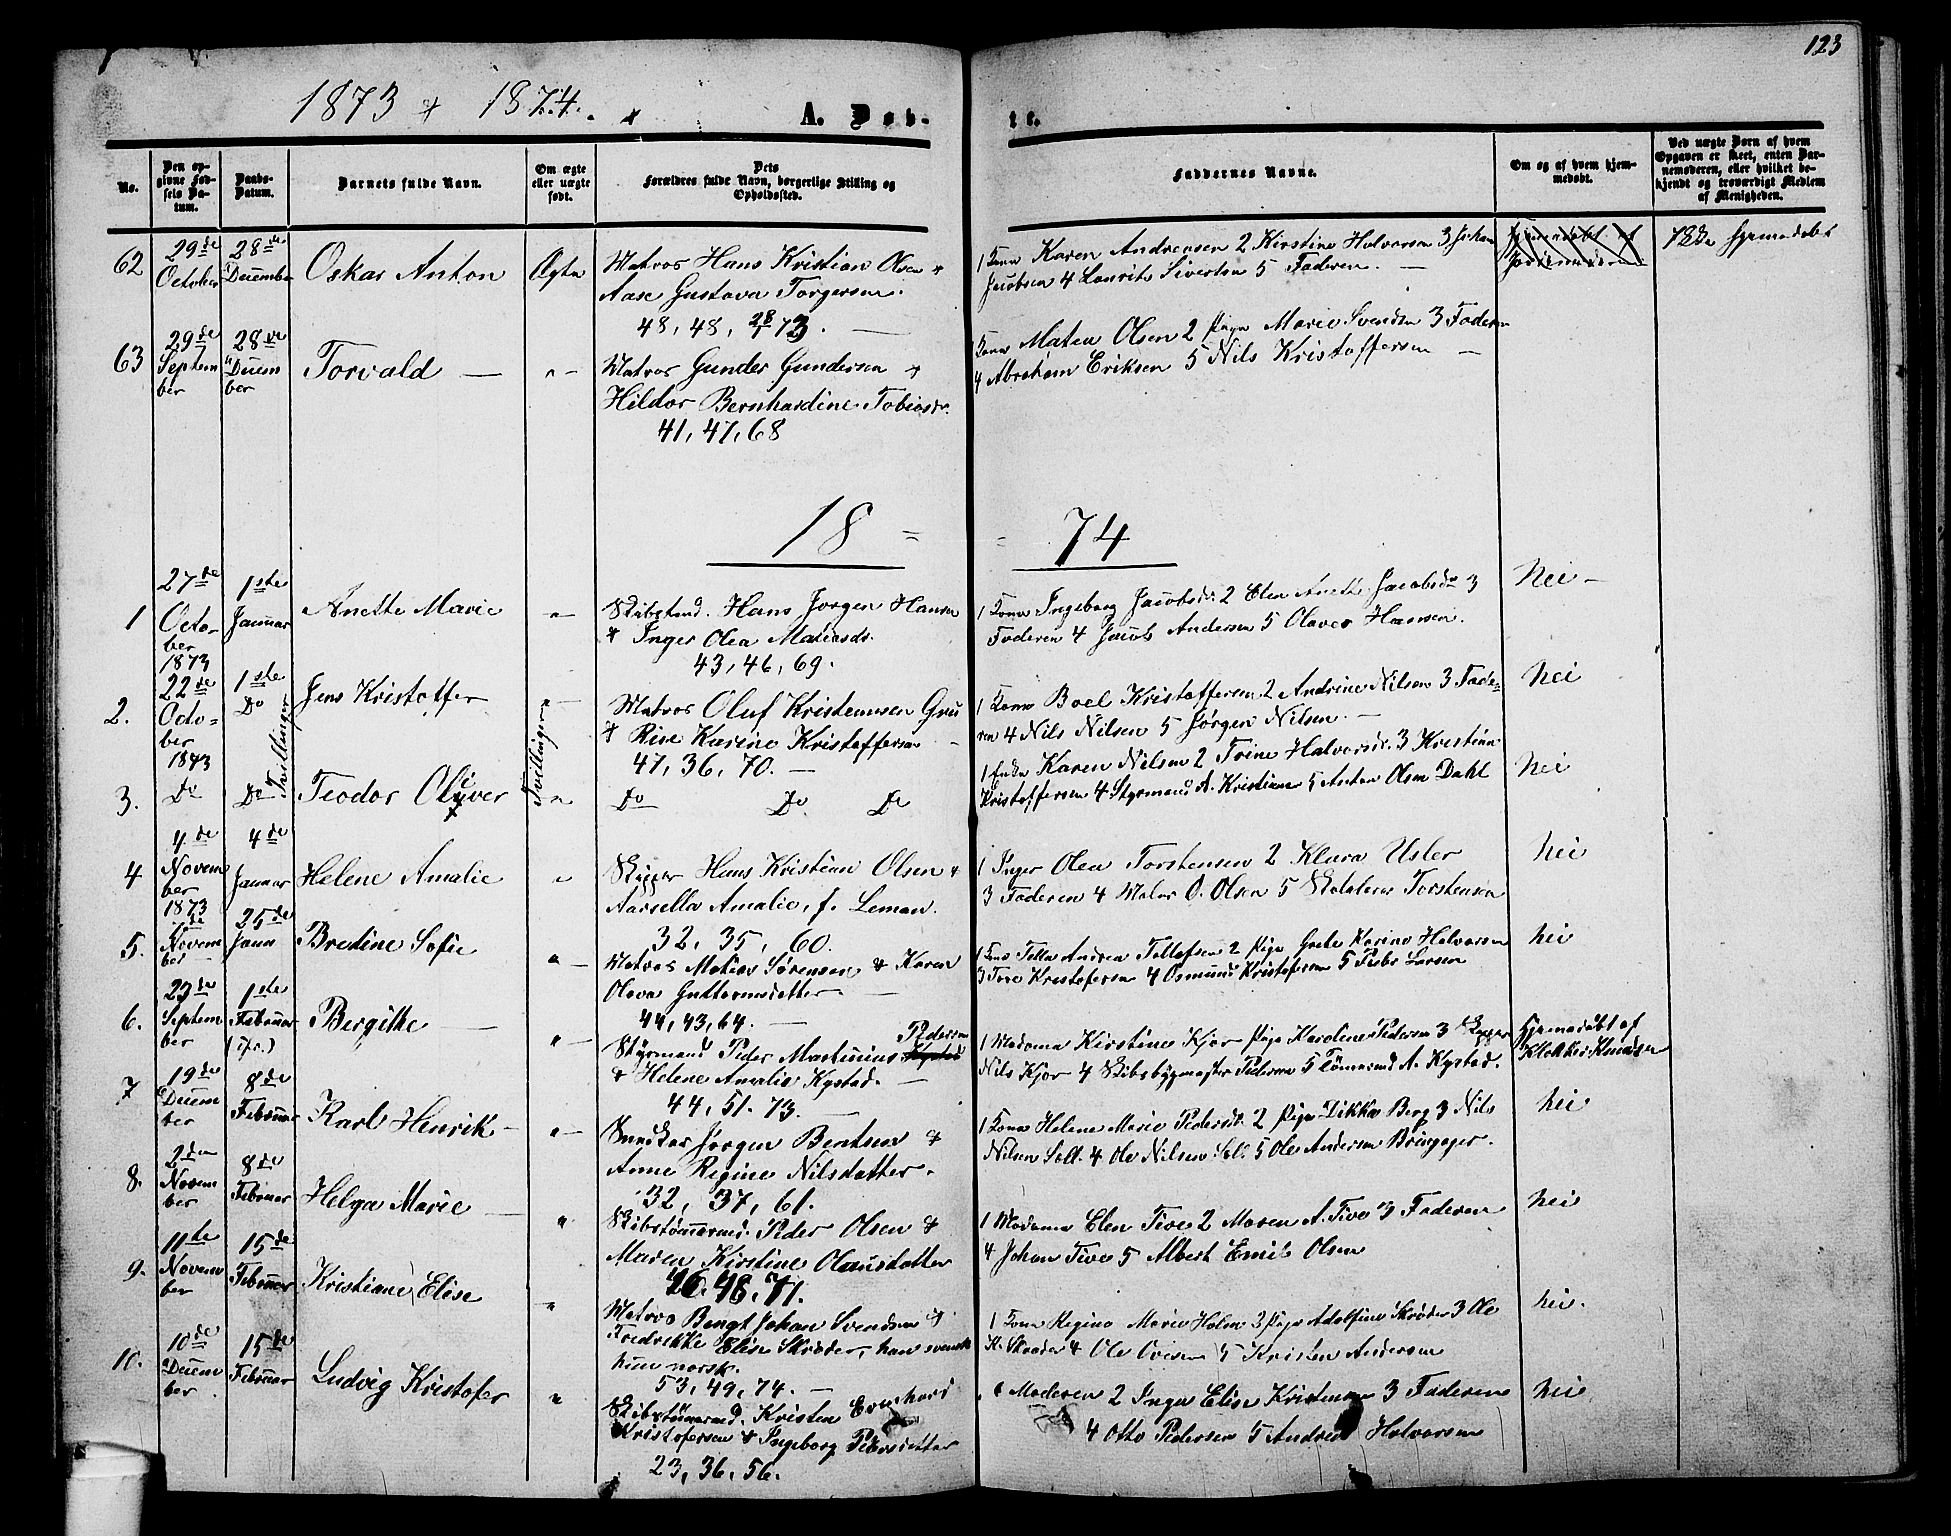 123
1873 & 1874.
A. Døbte.
No.
Den opgivne Fødsels Datum.
Daabs-Datum.
Barnets fulde Navn.
Om ægte eller uægte født.
Dets Forældres fulde Navn, borgerlige Stilling og Opholdssted.
Faddernes Navne.
Om og af hvem hjemmedøbt.
Ved uægte Børn af hvem Opgaven er skeet, enten Barnemoderen, eller hvilket bekjendt og troværdigt Medlem af Menigheden.
62
29de October
28de December
Oskar Anton
Ægte
Matros Hans Kristian Olsen &
Aase Gustava Torgersen.
48, 48, 73.
1 Kone Karen Andreasen 2 Kirstine Halvorsen 3 Johan
Jacobsen 4 Laurits Sivertsen 5 Faderen.
Hjemmedøbt af Jordemoderen
hjemmedøbt
63
29de September
28de December
Torvald
Matros Gunder Gundersen &
Hildor Bernhardine Tobiasdr.
41, 47, 68
Kone Maten Olsen 2 Pige Marie Svendsen 3 Faderen
4 Abraham Eriksen 5 Nils Kristoffersen
18 = = 74
1
27de October 1873
1ste Januar
Anette Marie
Skibstmd. Hans Jørgen Hansen
& Inger Olea Matiasdr.
43, 46, 69.
1 Kone Ingeborg Jacobsdr. 2 Elen Anette Jacobsdr 3
Faderen 4 Jacob Andersen 5 Olaves Hansen.
Nei
2.
22de October 1873
1ste Do
Tvillinger
Jens Kristoffer
Tvillinger
Matros Oluf Kristensen Gru
& Rise Karine Kristoffersen
47, 36, 70.
1 Kone Boel Kristoffersen 2 Andrine Nilsen 3 Faderen
4 Nils Nilsen 5 Jørgen Nilsen.
Nei
3.
Do
Do
Teodor Oliver
Do Do Do
1 Enke Karen Nilsen 2 Trine Halvorsdr. 3 Kristian
Kristoffersen 4 Styrmand A. Kristiansen 5 Anton Olsen Dahl
Nei
4
4de November 1873
4de Januar
Helene Amalie
Skipper Hans Kristian Olsen &
Aarsella Amalie, f. Leman.
32, 35, 60.
1 Inger Olea Torstensen 2 Klara Usler
3 Faderen 4 Maler O. Olsen 5 Torstensen
Nei
5.
November
25de Jann
Bredine Sofie
Matros Matias Sørensen & Karen
Olava Guttormsdatter
44, 43, 64.
1 Kone Tella Andrea Tollefsen 2 Pige Grete Karine Halvorsen
3 Tore Kristofersen 4 Osmund Kristofersen 5 Peder Larsen
Nei
6.
23de September
1ste Februar
Bergithe
Styrmand Peder Martinius Pedersen
& Helene Amalie Kystad.
44, 51. 73.
1 Madame Kirstine Kjør Pige Karoline Pedersen 3 Skipper
Nils Kjør 4 Skibsbygmester Pedersen 5 Tømmermd A. Kystad.
Hjemmedøbt af Klokker Knudsen
7
19de December
8de Februar
Karl Henrik
Snedker Jørgen Bentsen &
Anne Regine Nilsdatter.
32, 37, 61.
1 Kone Helene Marie Pedersdr. 2 Pige Dikka Berg 3 Nils
Nilsen Sell. 4 Ole Nilsen Sell. 5 Ole Andersen Bringager.
Nei
8.
2den November
8de Februar
Helga Marie
Skibstømmermd. Peder Olsen &
Maren Kirstine Olausdatter
46, 48, 71.
1 Madame Elen Tive 2 Maren A. Tive 3 Faderen
4 Johan Tive 5 Albert Emil Olsen
Nei
9.
11te November
15de Februar
Kristiane Elise
Matros Bengt Johan Svendsen &
Fredrikke Elise Skrøder, han svensk
hun norsk.
53, 49, 74.
1 Kone Regine Marie Holm 2 Pige Adolfine Skrøder 3 Ole
K. Skrøder 4 Ole Ovesen 5 Kristen Andersen
Nei.
10.
10de December
15de Februar
Ludvig Kristofer
Skibstømmermd. Kristen Evenhard
Kristofersen & Ingeborg Pedersdatter
23, 36, 56.
1 Moderen 2 Inga Elise Kristensen 3 Faderen
4 Otto Pedersen 5 Andreas Halvorsen
Nei